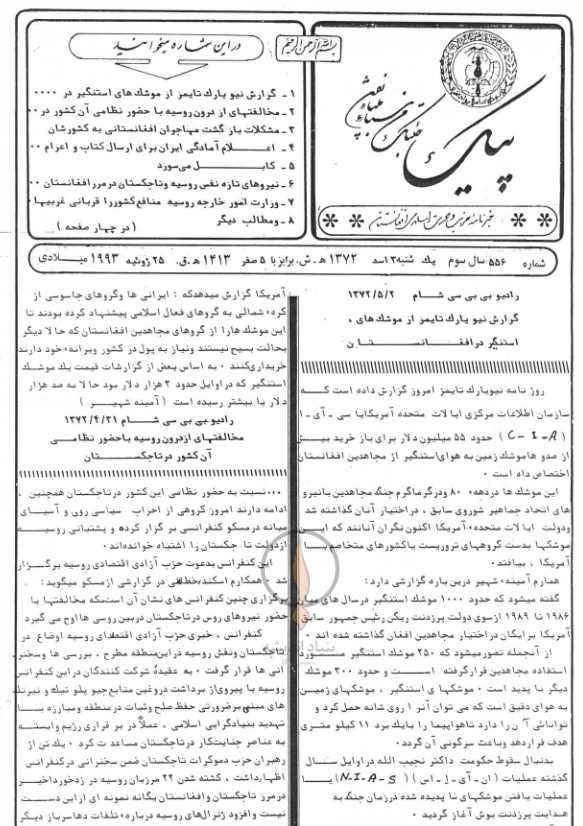 بسم الله الرحمن الرحیم
در این شماره میخوانید
۱ - گزارش نیو یارک تایمز از موشک های استنگیر در ۰۰۰۰
۲ - مخالفتهای از درون روسیه با حضور نظامی آن کشور در ۰۰
۳ - مشکلات بازگشت مهاجران افغانستانی به کشورشان
۴ - اعلام آمادگی ایران برای ارسال کتاب و اعزام ۰۰
۵ - کابل می‌سوزد
۶ - نیروهای تازه نفس روسیه وتاجکستان در مرز افغانستان ۰۰
۷ - وزارت امور خارجه روسیه منافع کشور را قربانی غربیها ۰
۸ - ومطالب دیگر
( در چهار صفحه )
پیک
خبرنامه حزب وحدت اسلامی افغانستان
شماره ۵۵۶ سال سوم یک شنبه ۳ اسد ۱۳۷۲ ه . ش . برابر با ۵ صفر ۱۴۱۳ ه . ق . ۲۵ ژوئیه ۱۹۹۳ میلادی
رادیو بی بی سی شام ۱۳۷۲/۵/۲
گزارش نیو یارک تایمز از موشک های ،
استنگیر در افغانستان
روز نامه نیویارک تایمز امروز گزارش داده است که
سازمان اطلاعات مرکزی ایالات متحده آمریکا یا سی - آی - ا
( C - I - A ) حدود ۵۵ میلیون دلار برای باز خرید بیش
از صدو هاموشک زمین به هوای استنگیر از مجاهدین افغانستان
اختصاص داده است ۰
این موشک ها دردهه ۸۰ ودر گرماگرم جنگ مجاهدین با نیرو
های اتحاد جماهیر شوروی سابق ، در اختیار آنان گذاشته شد
ودولت ایالات متحده آمریکا اکنون نگران آنانند که این
موشکها بدست گروههای تروریست یاکشورهای متخاصم با
آمریکا ، بیافتد ۰
همارم آمینه شهیر درین باره گزارشی دارد :
گفته میشود که حدود ۱۰۰۰ موشک استنگیر در سال های میان
۱۹۸۶ تا ۱۹۸۹ از سوی دولت پرزدنت ریگن رئیس جمهور سابق
آمریکا برایگان در اختیار مجاهدین افغان گذاشته شده اند ۰
از آنجمله تصور میشود که ۲۵۰ موشک استنگیر مسورد
استفاده مجاهدین قرار گرفته است و حدود ۳۰۰ موشک
دیگر نا پدید است ۰ موشکهای استنگیر ، موشکهای زمین
به هوای دقیق است که می توان آنرا روی شانه حمل کرد و
توانائی آن را دارد تاهواپیما را بایک برد ۱۱ کیلو متری
هدف قراردهد وباعث سرگونی آن گردد ۰
بدنبال سقوط حکومت داکتر نجیب الله در اوایل سال
گذشته عملیات ( ان - آی - اِ - اس ) ( N-I-A-S ) یا
عملیات یافتن موشکهای نا پدیده شده در زمان جنگ به
هدایت پرزدنت بوش آغاز گردید ۰
آمریکا گزارش میدهدکه : ایرانی ها وگروهای جاسوسی از
کره شمالی به گروهای فعال اسلامی پیشنهاد کرده بودند تا
این موشک هارا از گروهای مجاهدین افغانستان که حالا دیگر
بحالت بسیج نیستند ونیاز به پول در کشور ویرانه خود دارند
خریداری کنند ۰ به اساس بعض از گزارشات قیمت یک موشک
استنگیر که در اوایل حدود ۳ هزار دلار بود حالا به صد هزار
دلار یا بیشتر رسیده است ( آمینه شهیر )
رادیو بی بی سی شام ۱۳۷۲/۴/۳۱
مخالفتهای ازدرون روسیه باحضور نظامی
آن کشور درتاجکستان
۰۰۰ نسبت به حضور نظامی این کشور درتاجکستان همچنین ،
ادامه دارند امروز گروهی از احزاب سیاسی روی و آسیای
میانه درمسکو کنفرانسی بر گزار کرده و پشتبانی روسیه
ازدولت تا جکستان را اشتباه خوانده‌اند ۰
این کنفرانس بدعوت حزب آزادی اقتصادی روسیه برگزار
شد همکارم اسکندر ختلانی در گزارشی از مسکو میگوید :
برگزاری چنین کنفرانس های نشان آن است‌که مخالفتها با
حضور نیروهای روس درتاجکستان دربین روسی ها اوج می گیرد
کنفرانس ، خبری حزب آزادی اقتصادی روسیه اوضاع در
تاجکستان ونقش روسیه در این منطقه مطرح ، بررسی ها وسخنر
انی ها قرار گرفت ۰ به عقیده شرکت کنندگان در این کنفرانس
روسیه با پیروی از برداشت دروغین منابع جیو پلو تیک و نیرنگ
های مبنی بر ضرورتی حفظ صلح وثبات درمنطقه ومبارزه با
تهدید بنیادگرایی اسلامی ، عملاً در بر قراری رژیم وابسته
به عناصر جنایتکار درتاجکستان مساعدت کرد ۰ یک تن از
رهبران حزب دموکرات تاجکستان ضمن سخنرانی در کنفرانس
اظهارداشت ، کشته شدن ۲۲ مرزبان روسیه در زدخورد اخیر
در مرز تاجکستان وافغانستان یگانه نمونه ای از این دست
نیست و افزود ژنرالهای روسیه درباره تلفات دهاسرباز دیگر